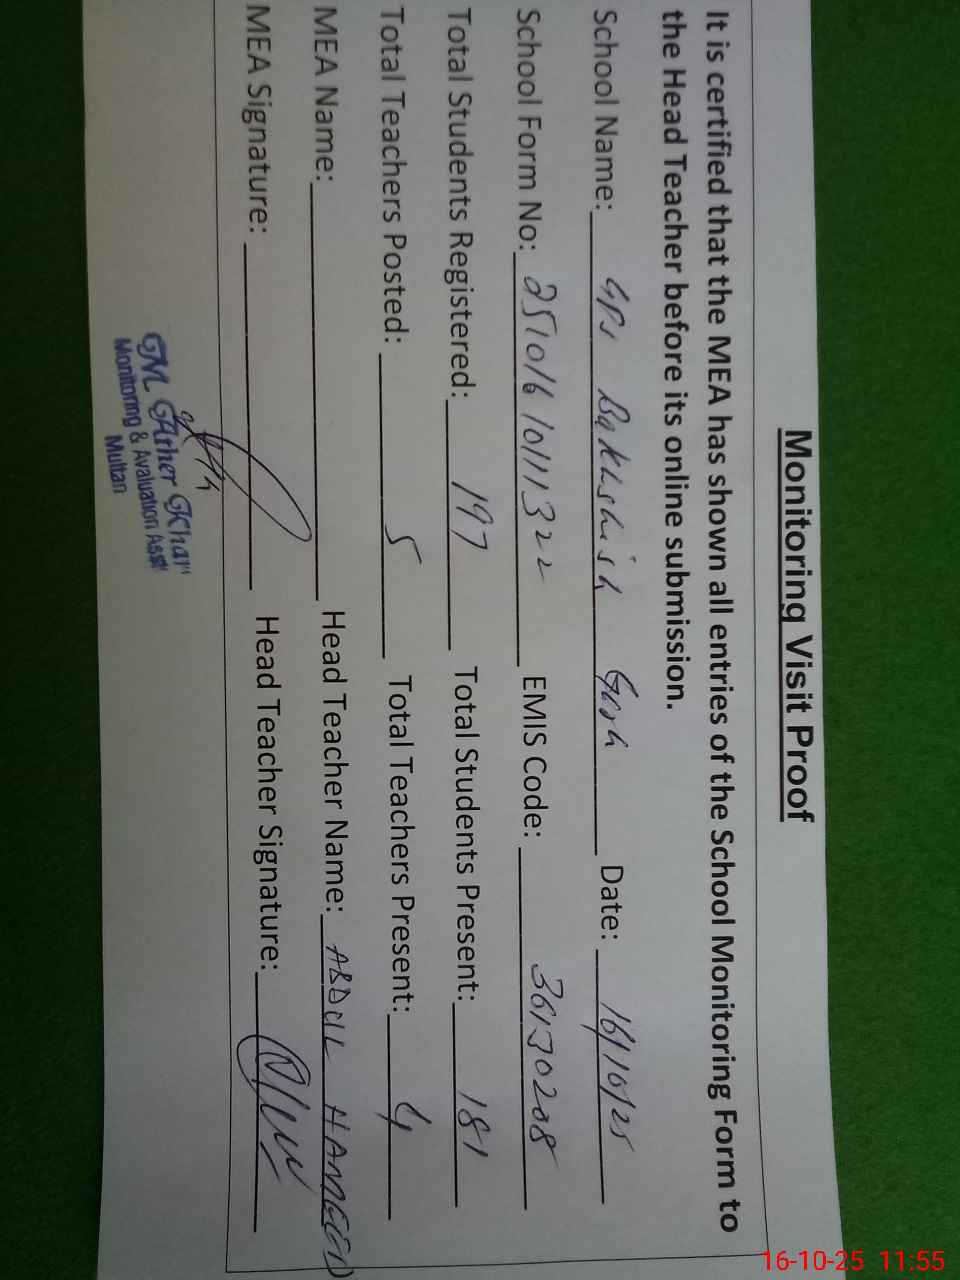 Monitoring Visit Proof
It is certified that the MEA has shown all entries of the School Monitoring Form to
the Head Teacher before its online submission.
School Name: GPS Bakhshish Garh Date: 16/10/25
School Form No: 2510161011322 EMIS Code: 36130208
Total Students Registered: 197 Total Students Present: 181
Total Teachers Posted: 5 Total Teachers Present: 4
MEA Name: Head Teacher Name: ABDUL HAMEED
MEA Signature: Head Teacher Signature:
GM Ather Khan
Monitoring & Avaluation Asstt
Multan
16-10-25 11:55